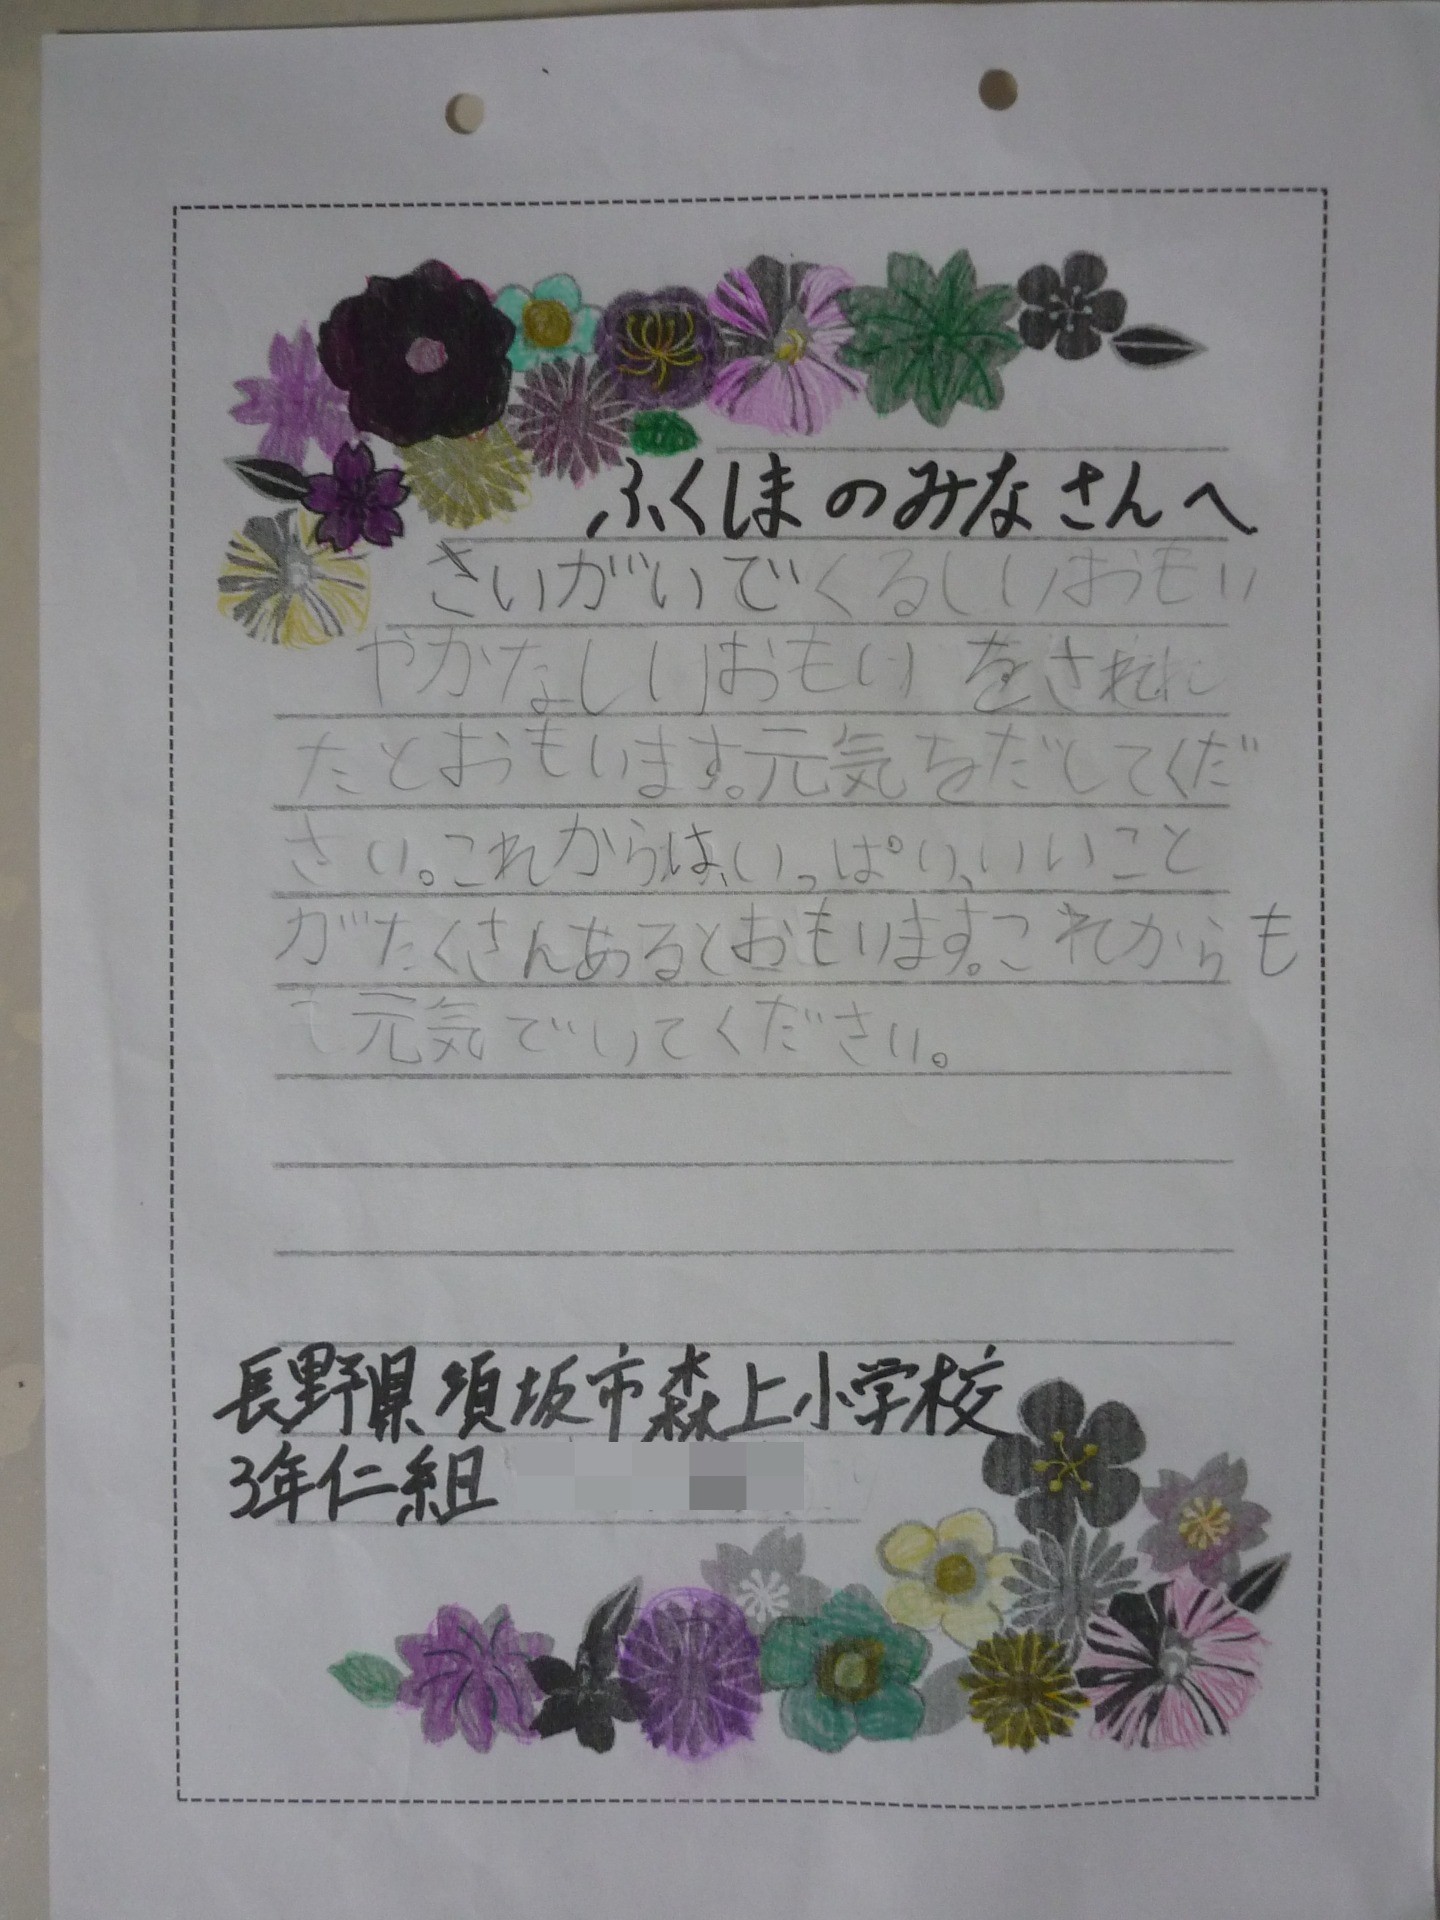 ふくまのみなさんへ
さいがいでくるしいおもい
やかなしいおもいをされ
たとおもいます。元気をだしてくだ
さい。これからは、いっぱい、いいこと
がたくさんあるとおもいます。これからも
も元気でいてください。
長野県須坂市森上小学校
3年仁組